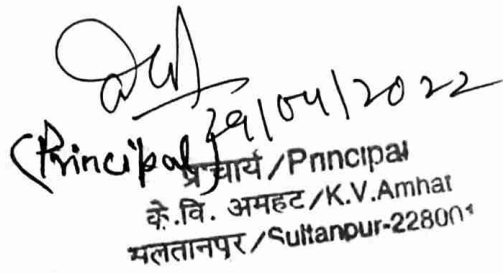 29/04/2022
(Principal)
प्राचार्य/Principal
के.वि. अमहट/K.V.Amhat
सुलतानपुर/Sultanpur-228001